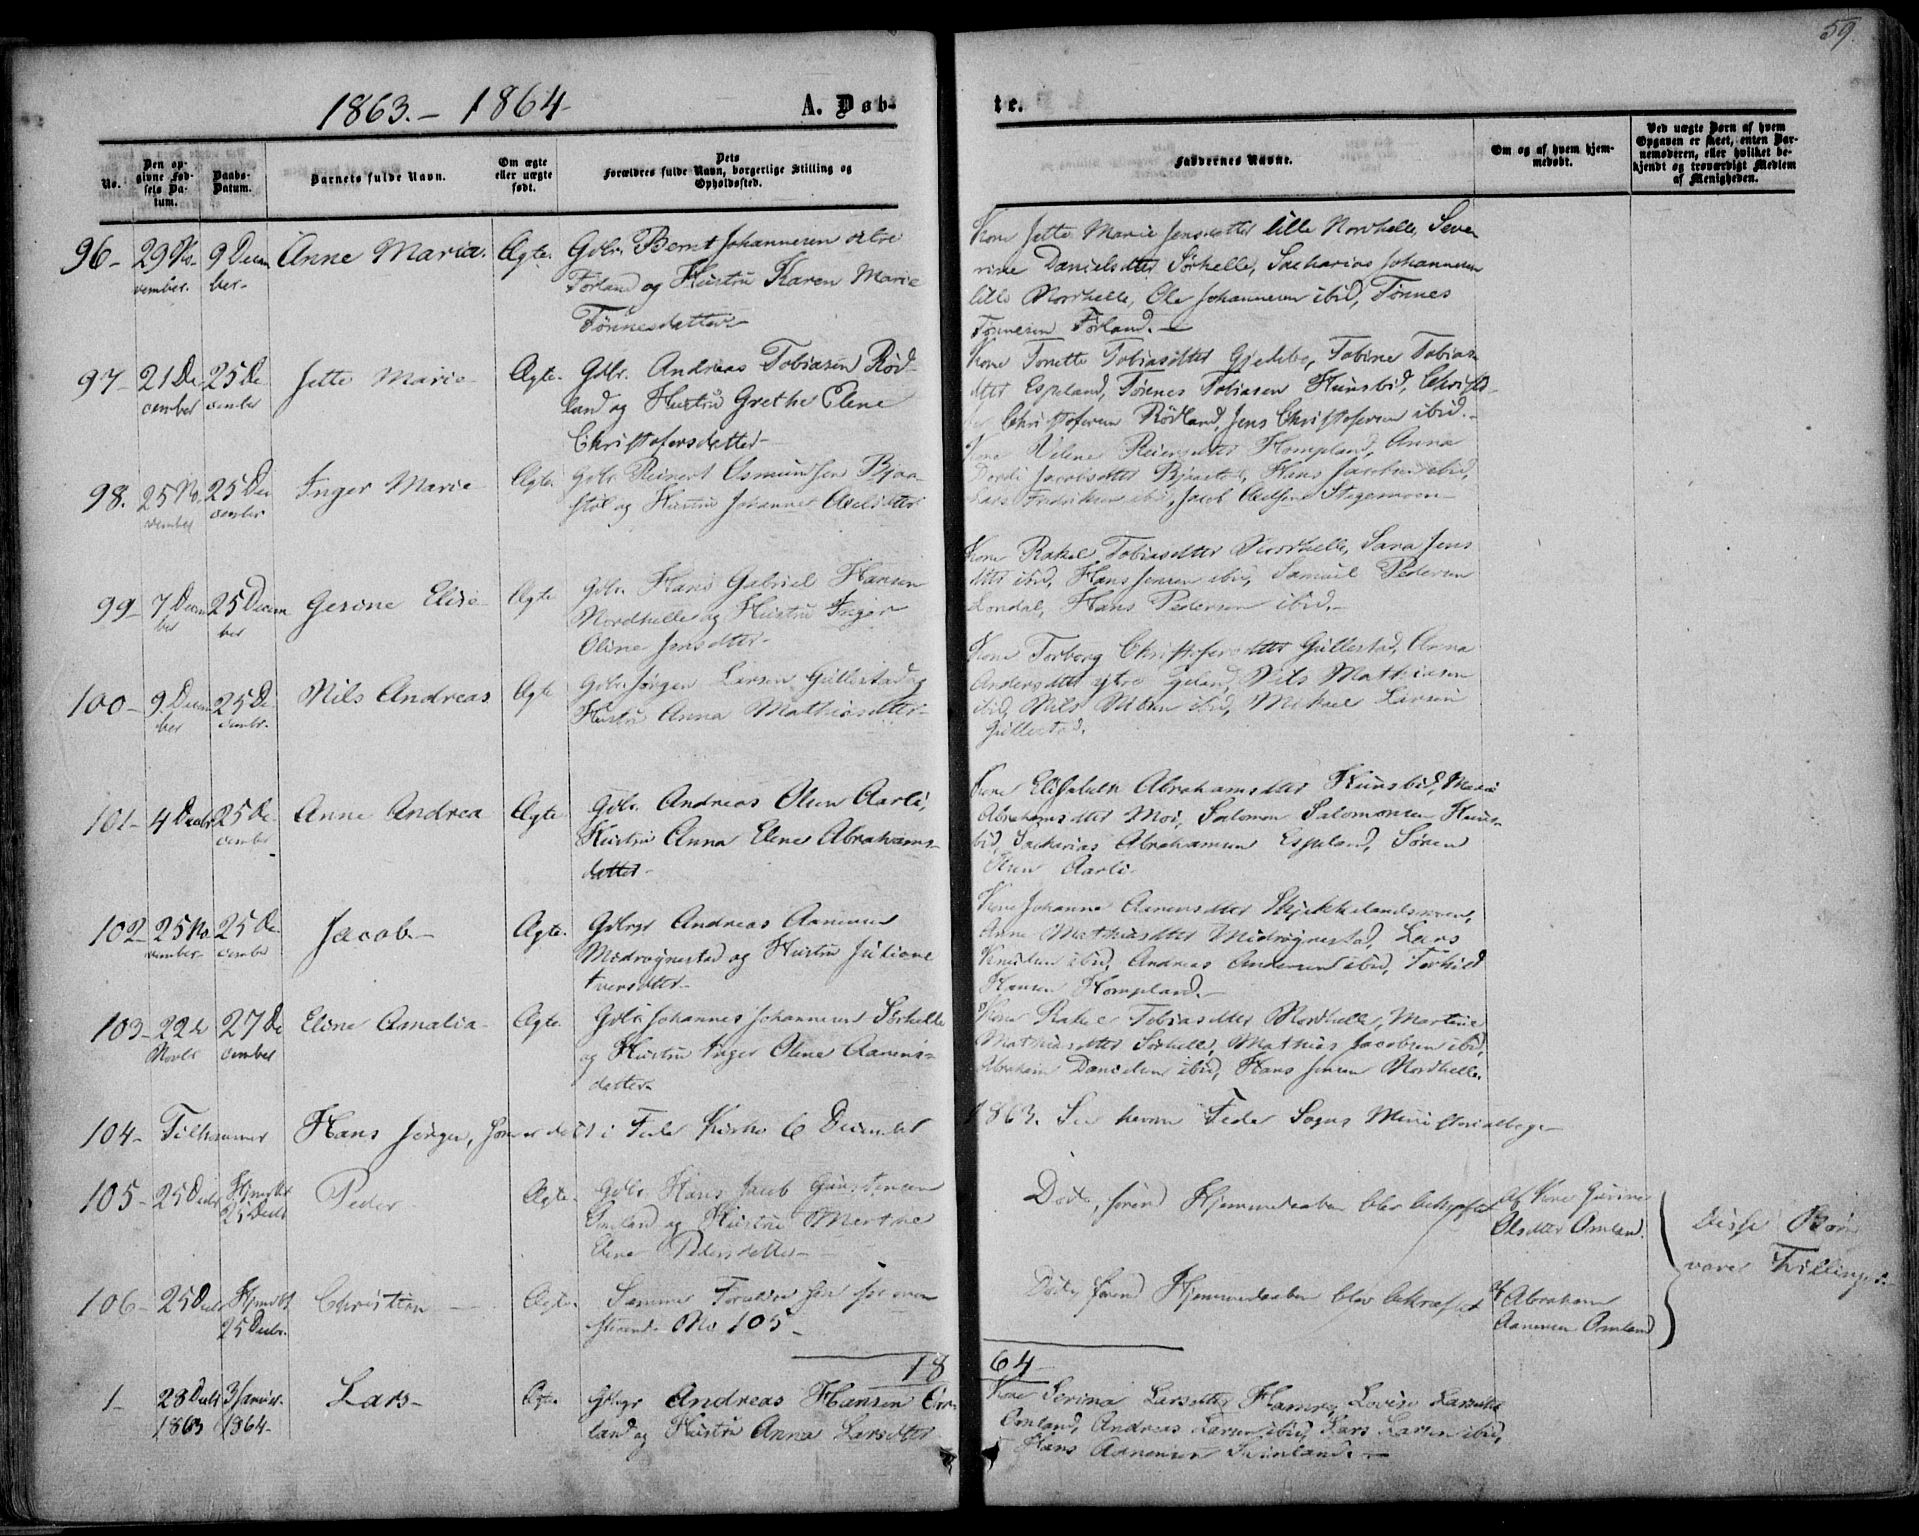 59.
1863. - 1864 - A. Døb- te.
No.
Den opgivne Fødsels Datum.
Daabs-Datum.
Barnets fulde Navn.
Om ægte eller uægte født.
Dets Forældres fulde Navn, borgerlige Stilling og Opholdssted.
Faddernes Navne.
Om og af hvem hjemmedøbt.
Ved uægte Børn af hvem Opgaven er skeet, enten Barnemoderen, eller hvilket bekjendt og troværdigt Medlem af Menigheden.
96- 29 November. 9 December- Anne Maria. Ægte.
Gdbr. Bernt Johannesen
Førland og Hustru Karen Marie
Tønnesdatter
Kone Jette Marie Jensdatter lille Nordhelle, Seve
rine Danielsdtter Sørhelle, Sacharias Johannesen
lille Nordhelle, Ole Johannesen ibid, Tønnes
Tønnesen Førland.-
97- 21 December 25 December Jette Marie- Ægte.
Gdbr. Andreas Tobiasen Rød-
land og Hustru Grethe Elene
Christofersdatter-
Kone Tonette Tobiasdtter Gjedebo, Tobine Tobias
dtter Espeland, Tønnes Tobiasen Hunsbid,
Christofersen Rødland, Jens Christofersen ibid.-
98. 25 November 25 December Inger Marie- Ægte
Gdbr. Reinert Osmundsen Bjaa
stol og Hustru Johanne Axelsdtter
Kone Helene Hompland, Anna
Dordi Jacobsdtter Bjaastol, Hans Jacobsen ibid,
Lars Fredriksen ibid, Jacob Stegemoen-
99- 7 December 25 December Gesine Elise- Ægte
Gdbr. Hans Gabriel Hansen
Nordhelle og Hustru Inger
Oline Jensdtter-
Kone Rakel Tobiasdtter Nordhelle, Sara Jens
dtter ibid, Hans Jensen ibid, Samuel Pedersen
Londal, Hans Pedersen ibid.-
100- 9 December 25 December. Nils Andreas Ægte
Gdbr. Jørgen Larsen Gullestad og
Hustru Anna Mathiasdtter-
Kone Torborg Christofersdtter Gullestad, Anna
Andersdtter ytre Nils Mathiasen
ibid, Nils ibid, Mikael Larsen
Gullestad.
101- 4 Decbr 25 December Anne Andrea Ægte
Gdbr. Andreas Olsen Aarli,
Hustru Anna Elene Abrahams-
datter-
Kone Elisabeth Abrahamsdtter Hunsbid, Maria
Abrahamsdtter Moi, Salomon Salomonsen Huns-
bid, Sacharias Abrahamsen Espeland, Søren
Olsen Aarli-
102- 25 November- 25 December Jacob- Ægte.
Gdbrgr Andreas Aanensen
Midrøgnestad og Hustru Juliane
Iversdtter-
Kone Johanne Aanensdtter
Anne Mathiasdtter Midrøgnestad, Lars
Knudsen ibid, Andreas Andersen ibid, Torkild
Hansen Hompland.-
103- 22de Novbr 27 December Eline Amalia- Ægte.
Gdbr Johannes Johannesen Sørhelle
og Hustru Inger Olene Aanens-
datter-
Kone Rakel Tobiasdtter Nordhelle, Martine
Mathiasdtter Sørhelle, Mathias Jacobsen ibid,
Abraham Danielsen ibid, Hans Jensen Nordhelle.
104- Tilkommer Hans Jørgen, som er døbt i Feda Kirke 6 December 1863. See herom Feda Sogns Ministerialbog-
105- 25 Decbr Hjmdbt 25 Decbr Peder- Ægte-
Gdbr. Hans Jacob
Omland og Hustru Merthe
Elene Pedersdatter-
Døde, førend Hjemmedaaben blev bekræftet
Af Kone Gurine
Olsdtter Omland.
106- 25 Decbr Hjmdbt 25 Decbr. Christian- Ægte-
Samme Forældre som for oven-
staaende No 105-
Døde, førend Hjemmedaaben blev bekræftet
Af Abraham
Aanensen Omland
Disse Børn
vare Tvillinger-
1864-
1- 28 Decbr 1863 3 Januar- 1864- Lars- Ægte-
Gdbrgr Andreas Hansen Om-
land og Hustru Anna Larsdtter
Kone Serina Larsdtter Lovise Larsdtter
Omland, Andreas Larsen ibid, Lars Larsen ibid,
Hans Aanensen